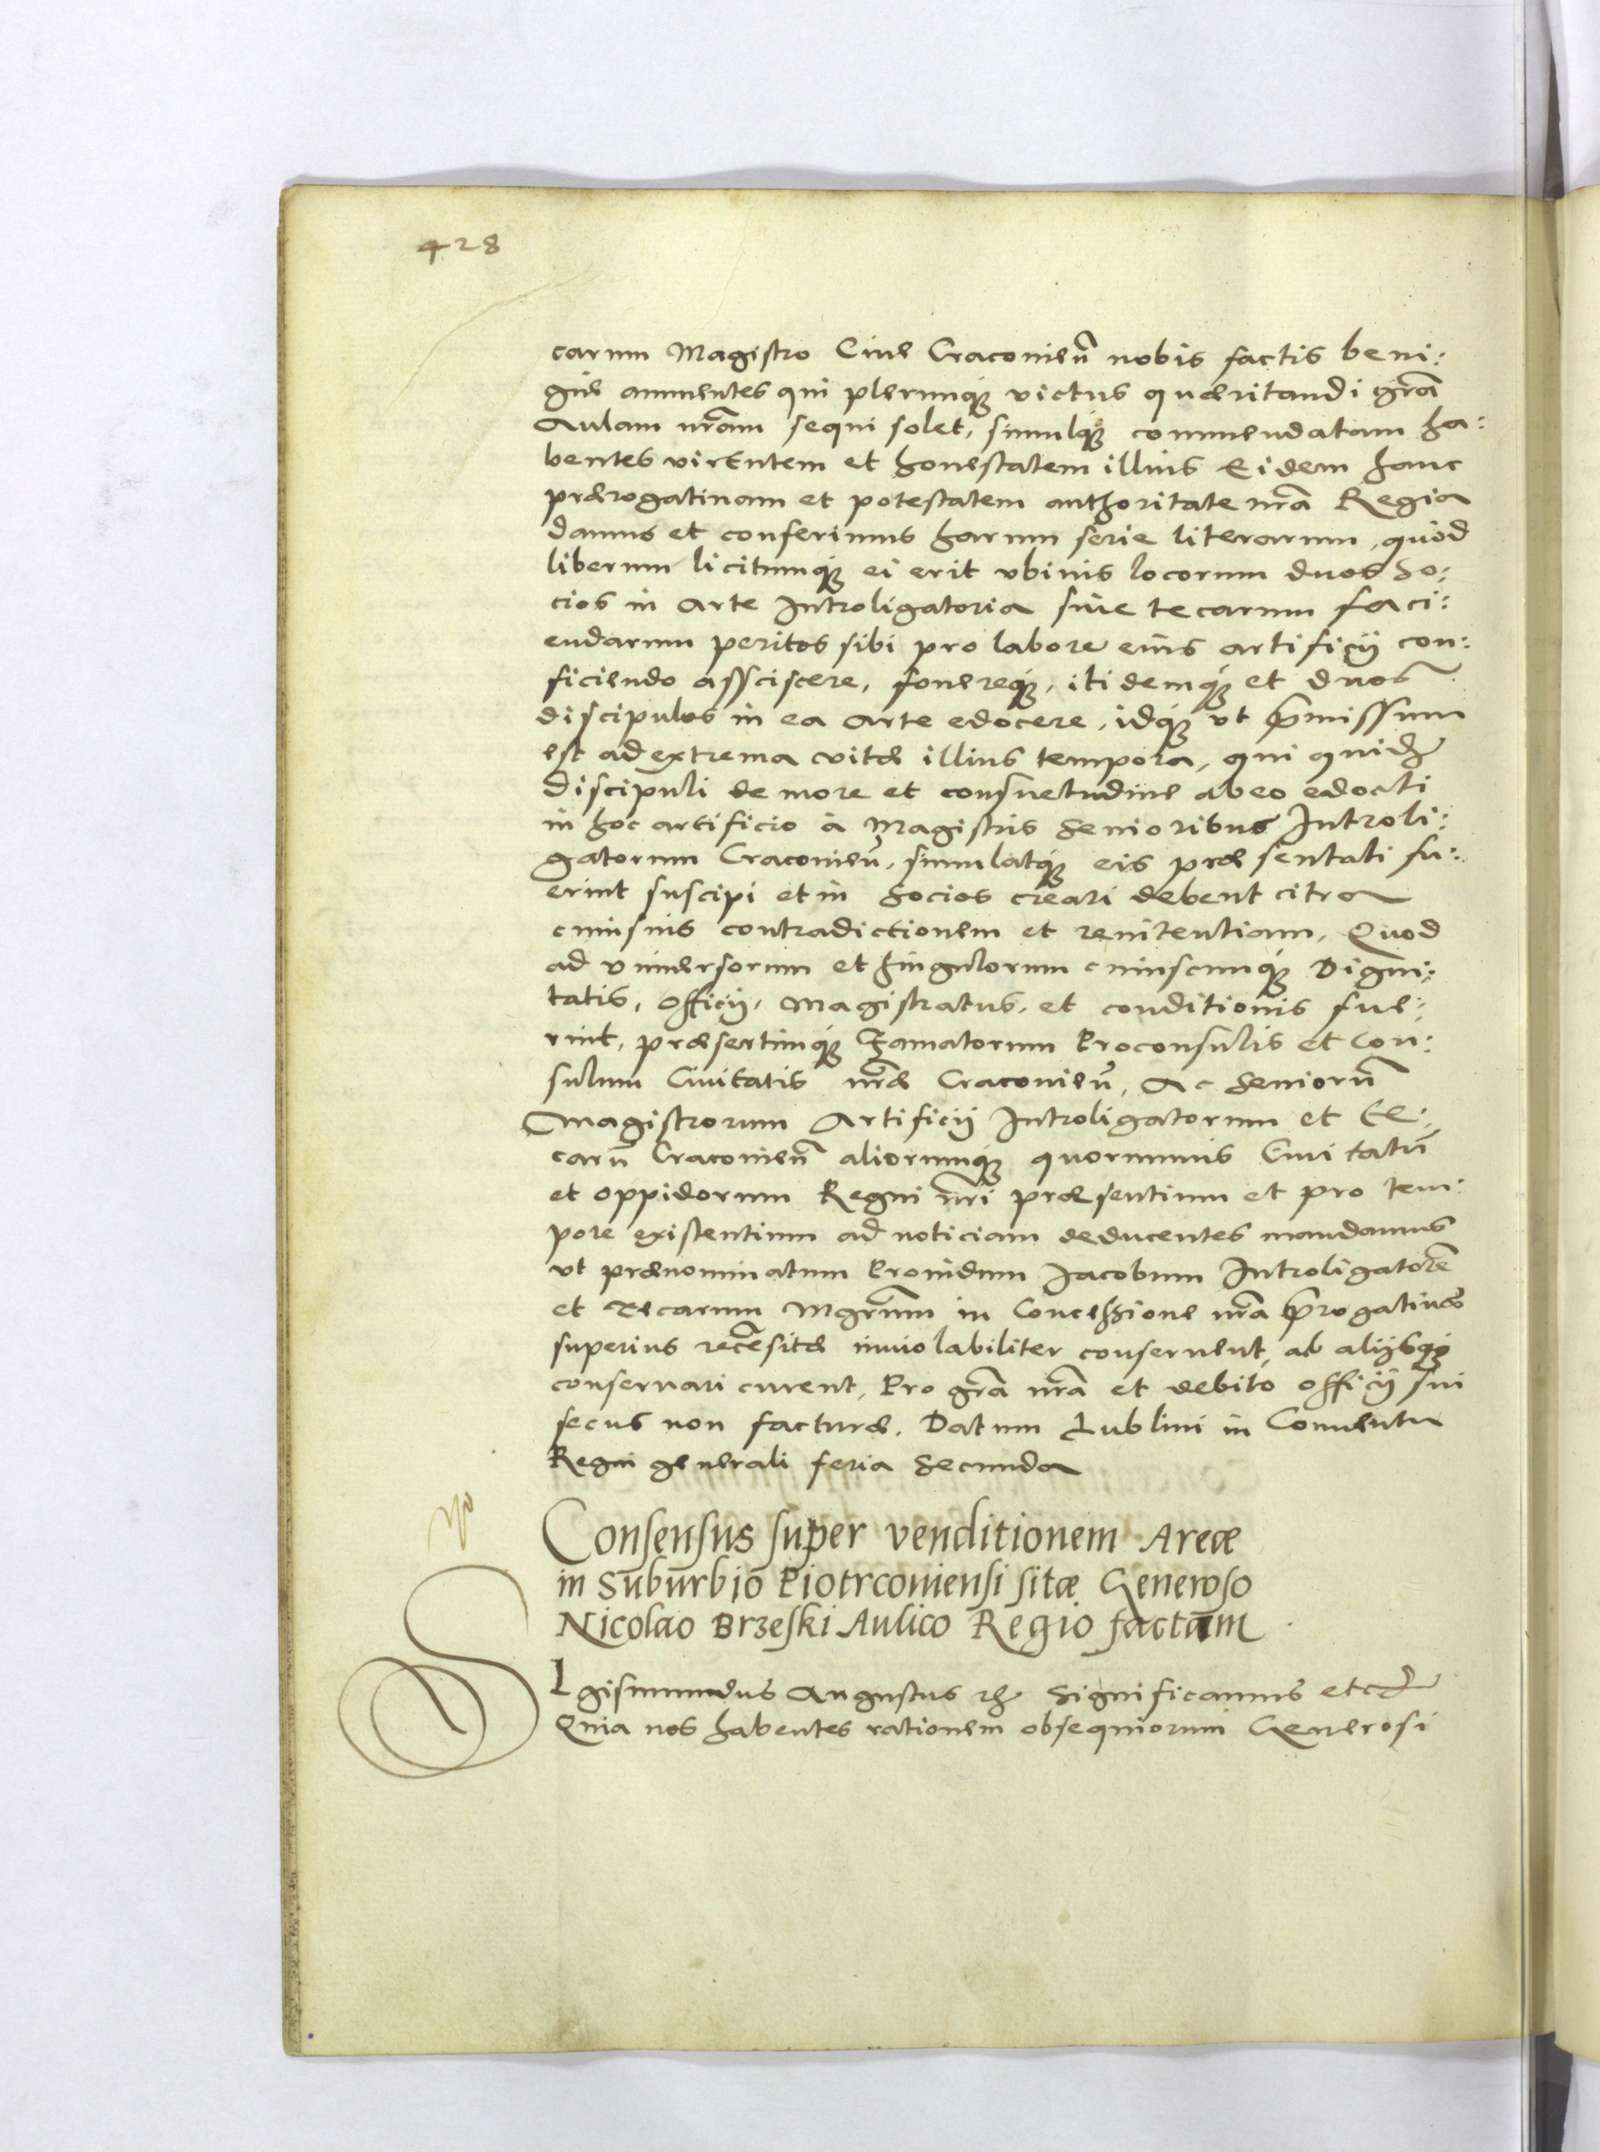 428
carum Magistro Ciue Cracovieñ nobis factis beni:
gne annuentes qui plerumq; victus quæritandi grã
Aulam nrãm sequi solet, simulq; commendatam ha:
bentes virtutem et honestatem illius Eidem hanc
prærogatiuam et potestatem authoritate nrã Regia
damus et conferimus harum serie literarum, quòd
liberum licitumq; ei erit vbiuis locorum duos So:
cios in Arte Introligatoria siue tecarum faci:
endarum peritos sibi pro labore eius artificij con:
ficiendo assciscere, fouereq;, itidemq; et duos
discipulos in ea arte edocere, idq; vt p̃missum
est ad extrema vitæ illius tempora, qui quidẽ
Discipuli de more et consuetudine ab eo edocti
in hoc artificio à Magistris Senioribus Introli:
gatorum Cracovieñ, simulatq; eis præsentati fu:
erint suscipi et in Socios creari debent citra
cuiusuis contradictionem et renitentiam, Quod
ad vniuersorum et singulorum cuiuscunq; Digni:
tatis, Officij, Magistratus, et conditionis fue:
rint, præsertimq; Famatorum Proconsulis et Con:
sulum Ciuitatis nræ Cracovieñ, Ac Seniorũ
Magistrorum Artificij Introligatorum et Te:
carũ Cracovieñ aliorumq; quorumuis Ciuitatũ
et Oppidorum Regni nri præsentium et pro tem:
pore existentium ad noticiam deducentes mandamus
vt prænominatum Prouidum Jacobum Introligatorẽ
et Tecarum Mgrũm in Concessione nrã p̃rogatiuæ
superius recẽsitæ inuiolabiliter conseruent, ab alijsq;
conseruari curent, Pro grã nrã et debito officij sui
secus non facturæ. Datum Lublini in Conuentu
Regni generali feria Secunda
Consensus super venditionem Areæ
in Suburbio Piotrcoviensi sitæ Generoso
Nicolao Brzeski Aulico Regio factam
SIgismundus Augustus &c. Significamus etc.
Quia nos habentes rationem obsequiorum Generosi